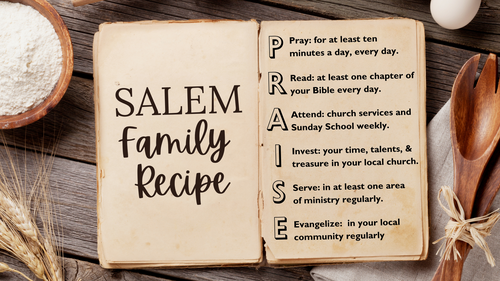 SALEM
Family
Recipe
P Pray: for at least ten
minutes a day, every day.
R Read: at least one chapter of
your Bible every day.
A Attend: church services and
Sunday School weekly.
I Invest: your time, talents, &
treasure in your local church.
S Serve: in at least one area
of ministry regularly.
E Evangelize: in your local
community regularly